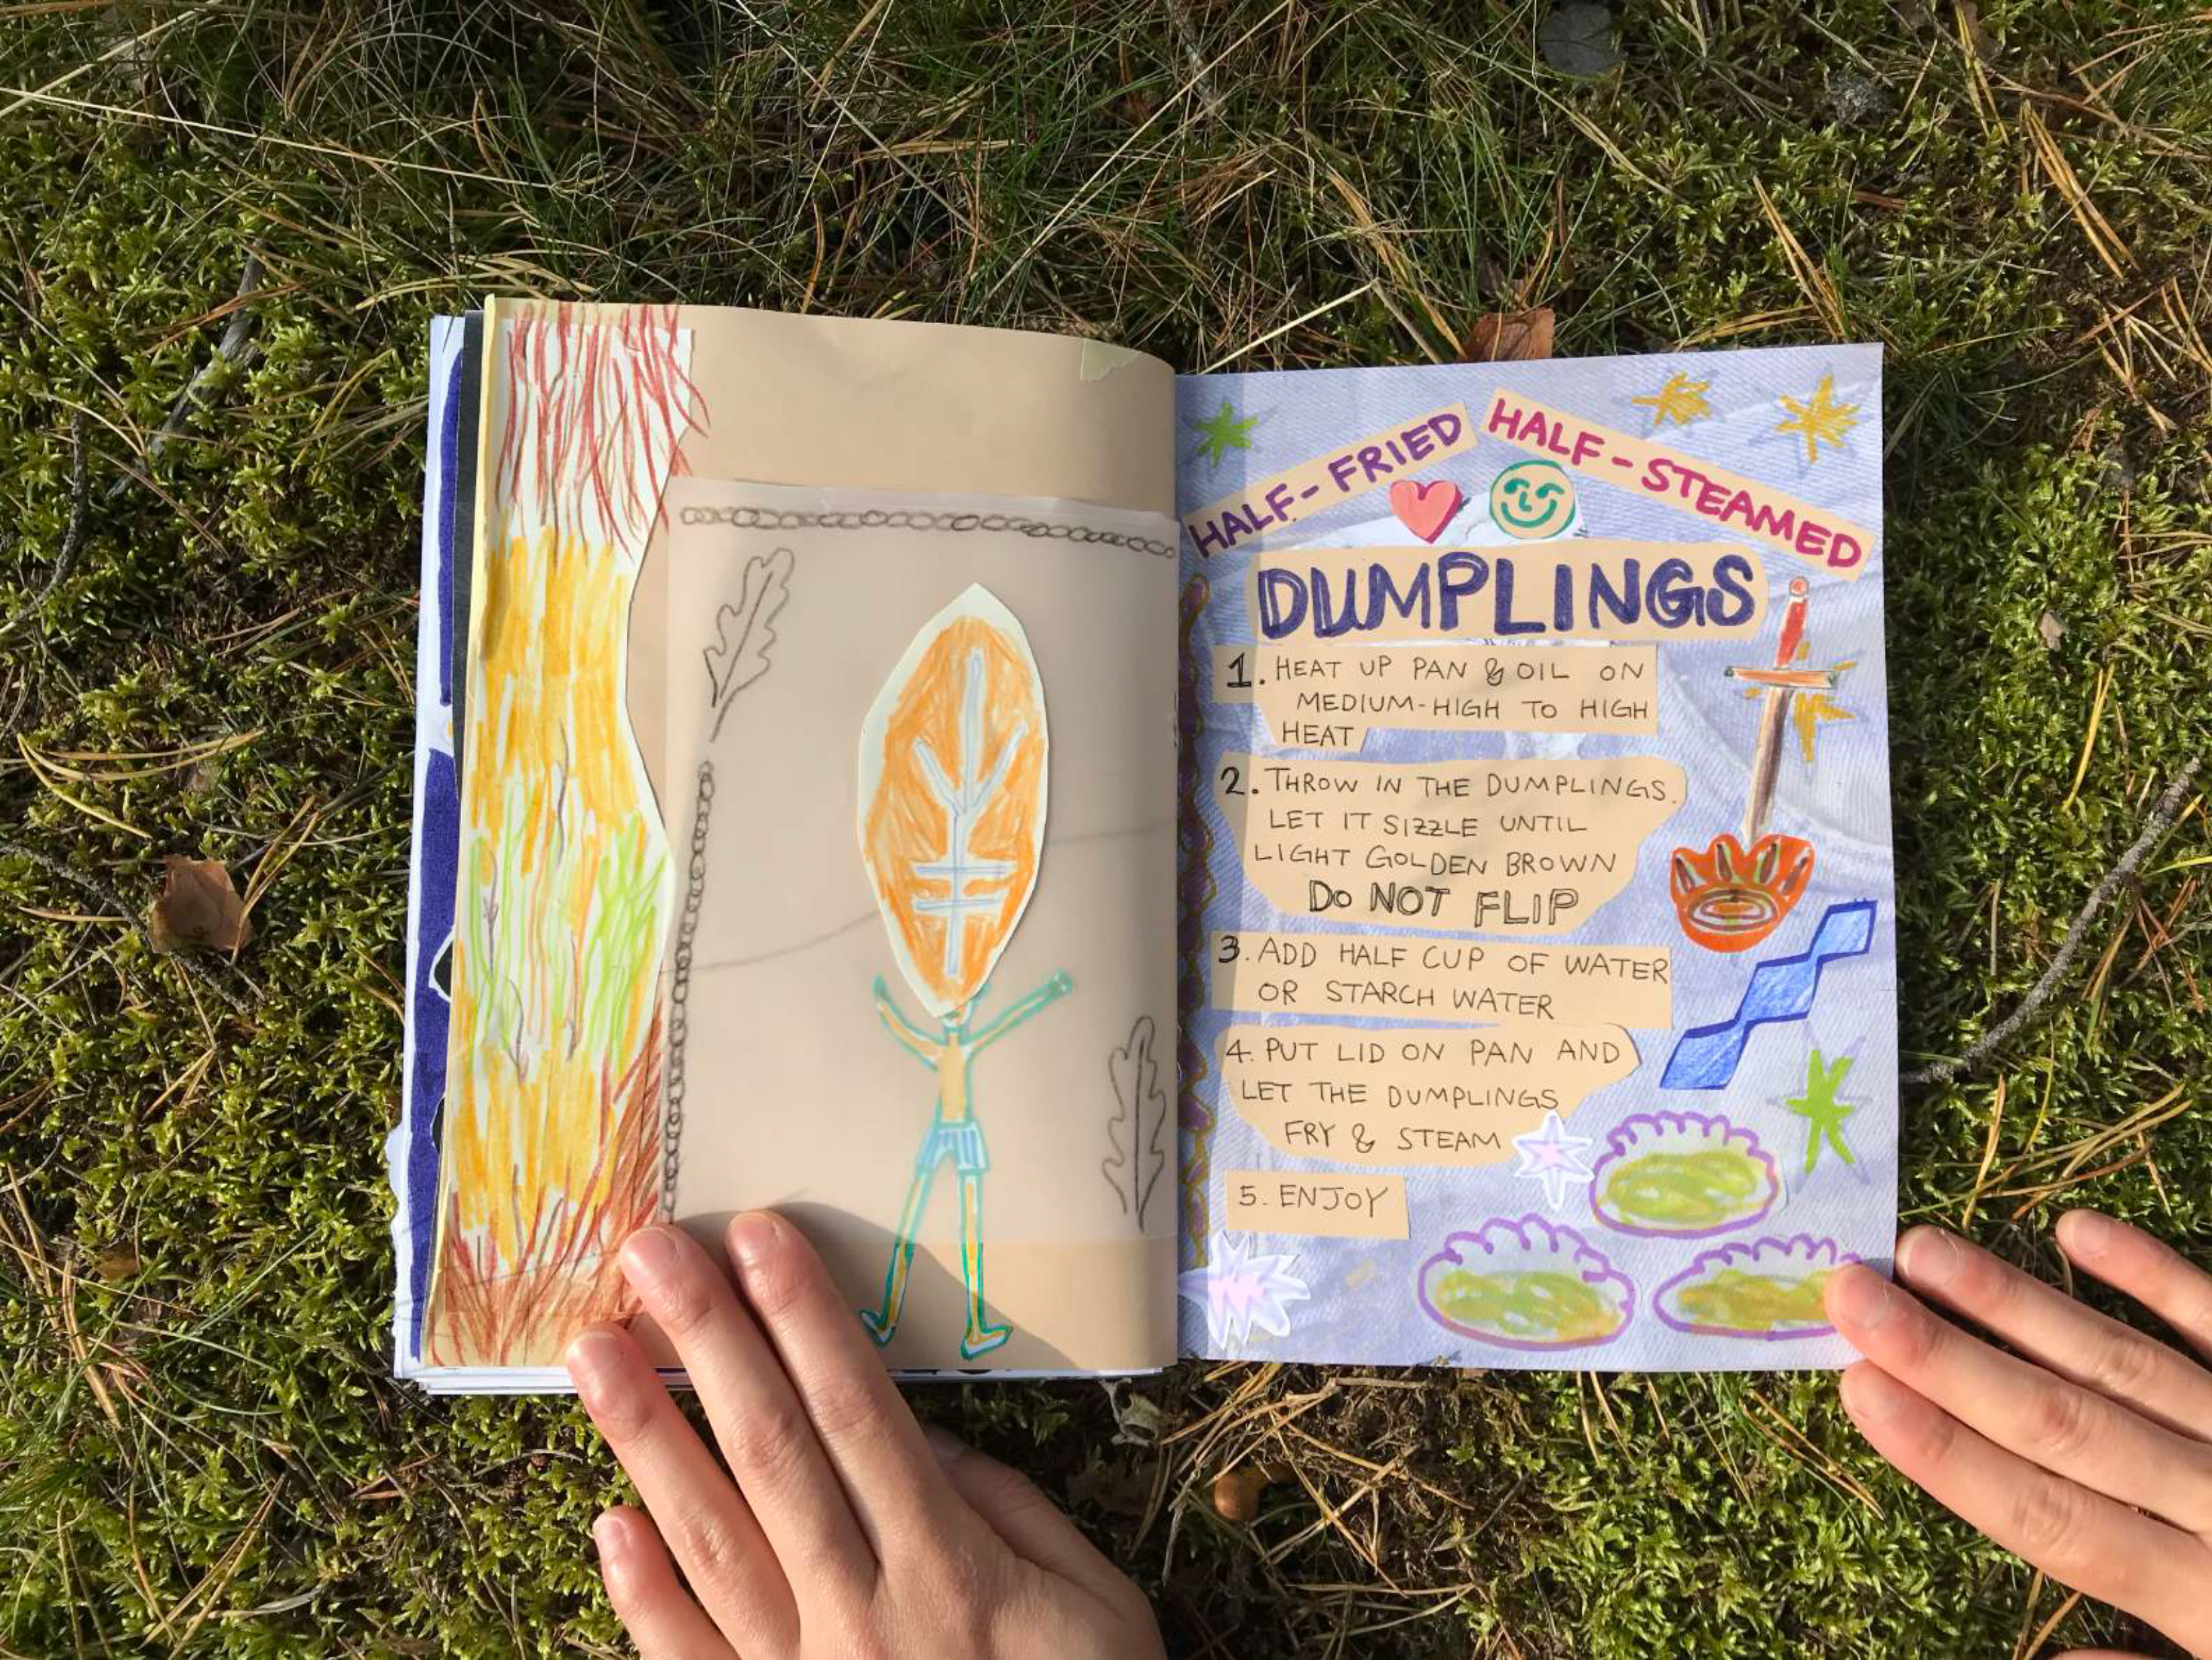 HALF-FRIED HALF-STEAMED
DUMPLINGS
1. HEAT UP PAN & OIL ON
MEDIUM-HIGH TO HIGH
HEAT
2. THROW IN THE DUMPLINGS.
LET IT SIZZLE UNTIL
LIGHT GOLDEN BROWN
DO NOT FLIP
3. ADD HALF CUP OF WATER
OR STARCH WATER
4. PUT LID ON PAN AND
LET THE DUMPLINGS
FRY & STEAM
5. ENJOY